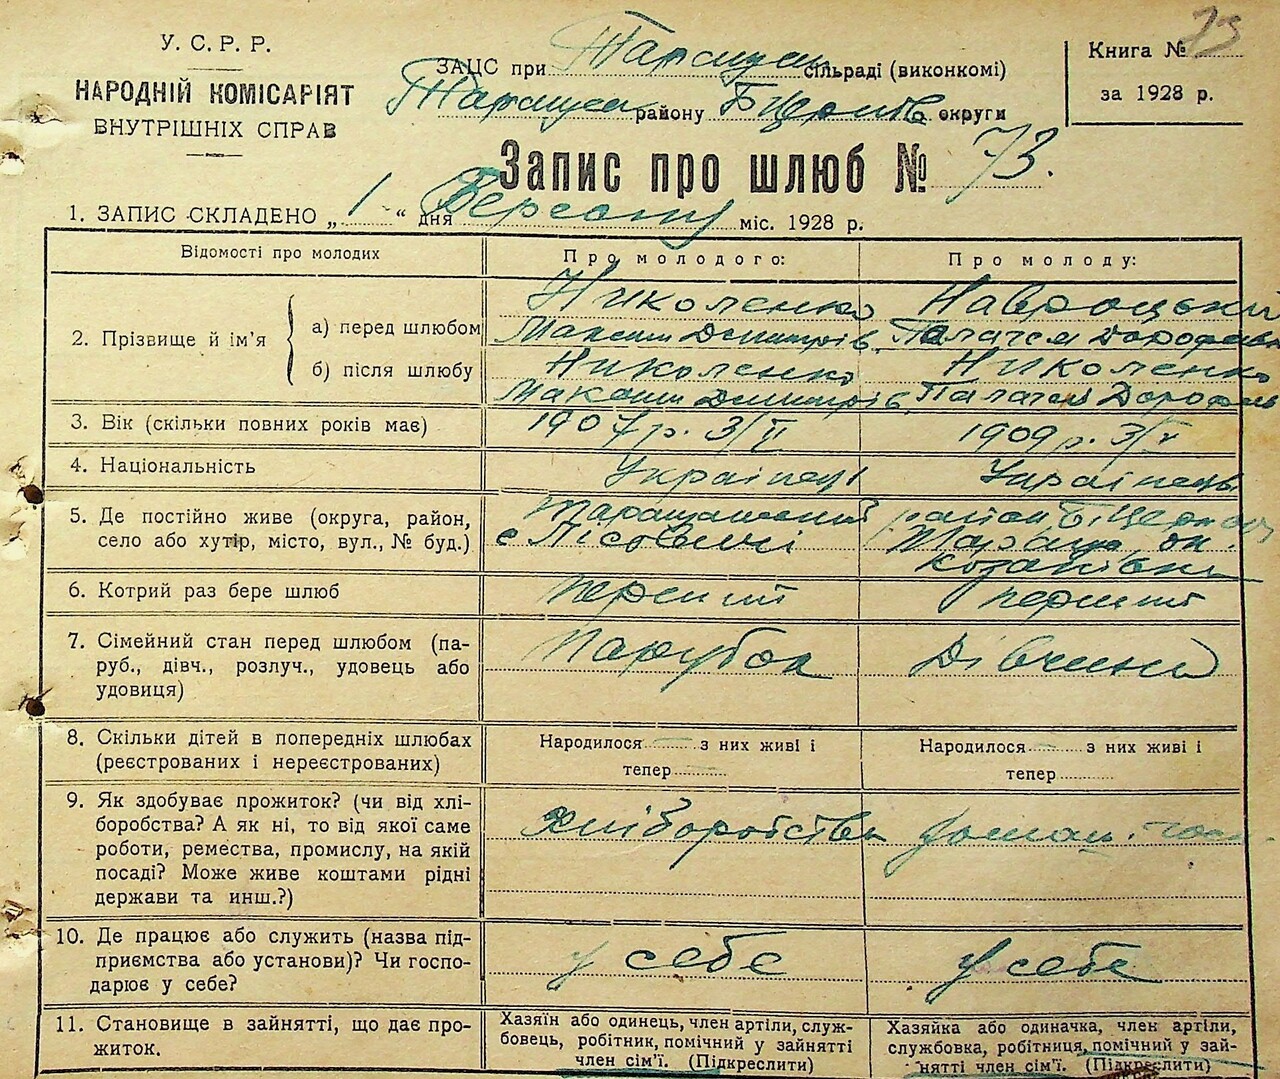 73
У. С. Р. Р.
НАРОДНІЙ КОМІСАРІЯТ
ВНУТРІШНІХ СПРАВ
ЗАЦС при Таращан сільраді (виконкомі)
району Б Церків округи
Книга №
за 1928 р.
Запис про шлюб № 73.
1. ЗАПИС СКЛАДЕНО „ 1 “ дня Вересня міс. 1928 р.
Відомості про молодих
Про молодого:
Про молоду:
2. Прізвище й ім'я
а) перед шлюбом
Николенко
Максим Дмитрів
Навроцьки
Палагея Дорофеев
б) після шлюбу
Николенко
Максим Дмитрів
Николенко
Палагея Дорофеев
3. Вік (скільки повних років має)
1907 р. 3/VI
1909 р. 3/V
4. Національність
Українці
Українці
5. Де постійно живе (округа, район,
село або хутір, місто, вул., № буд.)
Таращанский
с Лісовичі
район, Б Церков
Тараща
6. Котрий раз бере шлюб
перший
перший
7. Сімейний стан перед шлюбом (па-
руб., дівч., розлуч., удовець або
удовиця)
Парубок
Дівчина
8. Скільки дітей в попередніх шлюбах
(реєстрованих і нереєстрованих)
Народилося — з них живі і
тепер
Народилося — з них живі і
тепер
9. Як здобуває прожиток? (чи від хлі-
боробства? А як ні, то від якої саме
роботи, ремества, промислу, на якій
посаді? Може живе коштами рідні
держави та инш.?)
хліборобства
домаш. госп.
10. Де працює або служить (назва під-
приємства або установи)? Чи госпо-
дарює у себе?
у себе
у себе
11. Становище в зайнятті, що дає про-
житок.
Хазяїн або одинець, член артіли, служ-
бовець, робітник, помічний у зайнятті
член сім'ї. (Підкреслити)
Хазяйка або одиначка, член артіли,
службовка, робітниця, помічний у зай-
нятті член сім'ї. (Підкреслити)